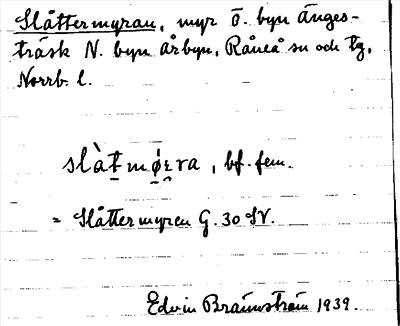 Slåttermyran, myr ö. byn Änges-
träsk N. byn Årbyn, Råneå sn och tg,
Norrb. l.
slàt̠mø̀ɛra, bf. fem.
= Slåttermyren G. 30 SV.
Edvin Brännström 1939.